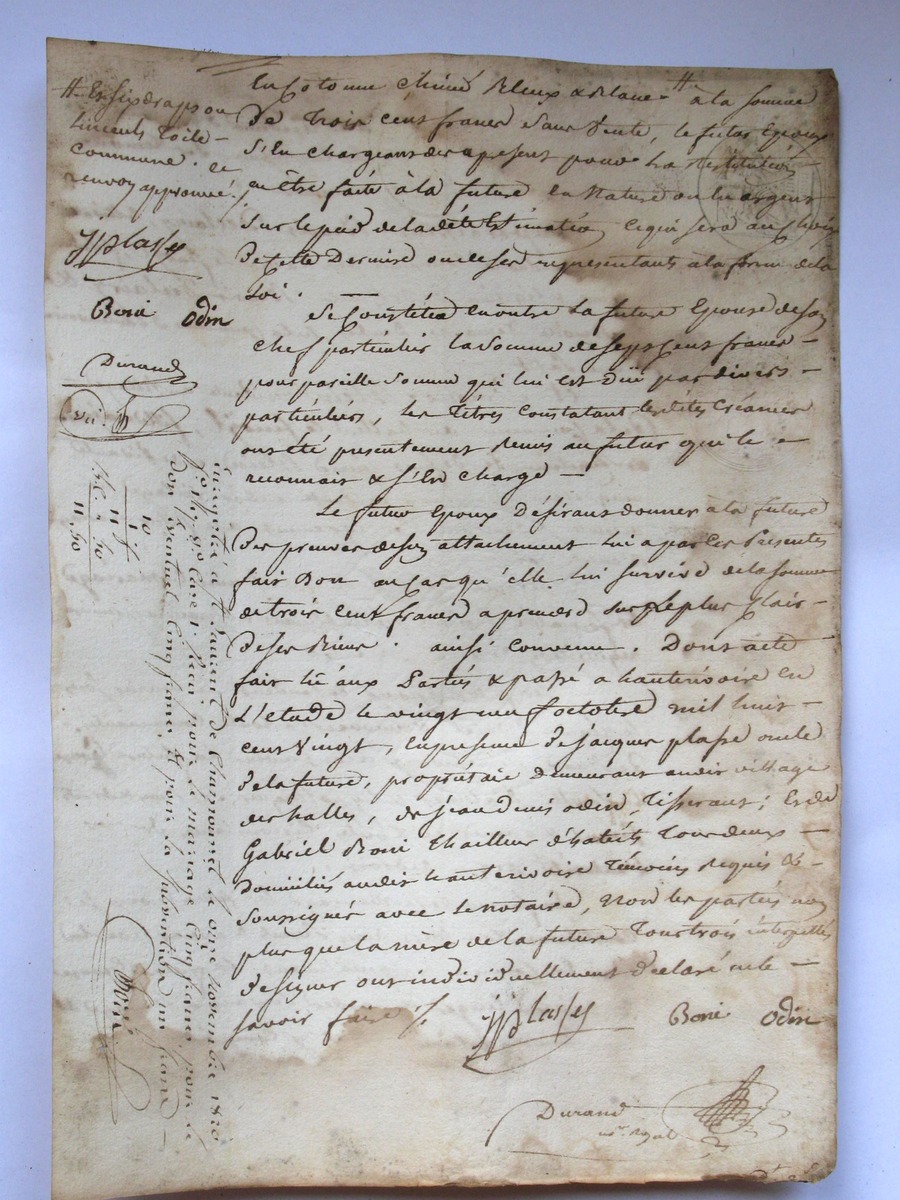 # Et six draps ou
linceuls toile
commune. ce
renvoy approuvé./.
JJ Plasse
Boni Odin
Durand
en cotonne chiné Bleux & Blanc # à la somme
De Trois cent francs sans vente, le futur Epoux
S'En chargeant des apresent pour la restitution
en être faite à la future en Nature ou en argent
sur le pied de ladite Estimation, ce qui sera au choix
De cette Derniere ou de ses representants a la forme de la
Loi.
Se Constitüe en outre la future Epouse de son
chef particulier la somme de sept Cent francs
pour pareille somme qui lui est düe par divers
particuliers, les titres constatant lesdites Créances
ont été presentement remis au futur qui le
reconnait & s'En charge
Le futur Epoux Désirant donner à la future
Des preuves de son attachement lui a par ces Presentes
fait Don au cas qu'elle lui survive de la somme
de trois cent francs a prendre sur le plus clair
De ses Biens. ainsi convenu. Dont acte
fait lû aux Parties & passé a hauterivoire En
L'etude le vingt neuf octobre mil huit
cent Vingt, En presence De jacques plasse oncle
de la future, propriétaire demeurant audit village
des halles, de jean Denis odin, Tisserant; Et de
Gabriel Boni Thailleur d'habits Tous deux
Domiciliés audit hauterivoire Témoins Requis &
soussignés avec le notaire, Non les parties non
plus que la mère de la future Tous trois interpellés
de signer ont individuellement declaré ne le
savoir faire ./.
JJ Plasse Boni Odin
Durand
not. Royal
10
1
11
Enregistré à St Laurent de Chamousset le onze novembre 1820
pour le mariage Cinq francs, pour le
don Eventuel Cinq francs, & pour la subvention un franc